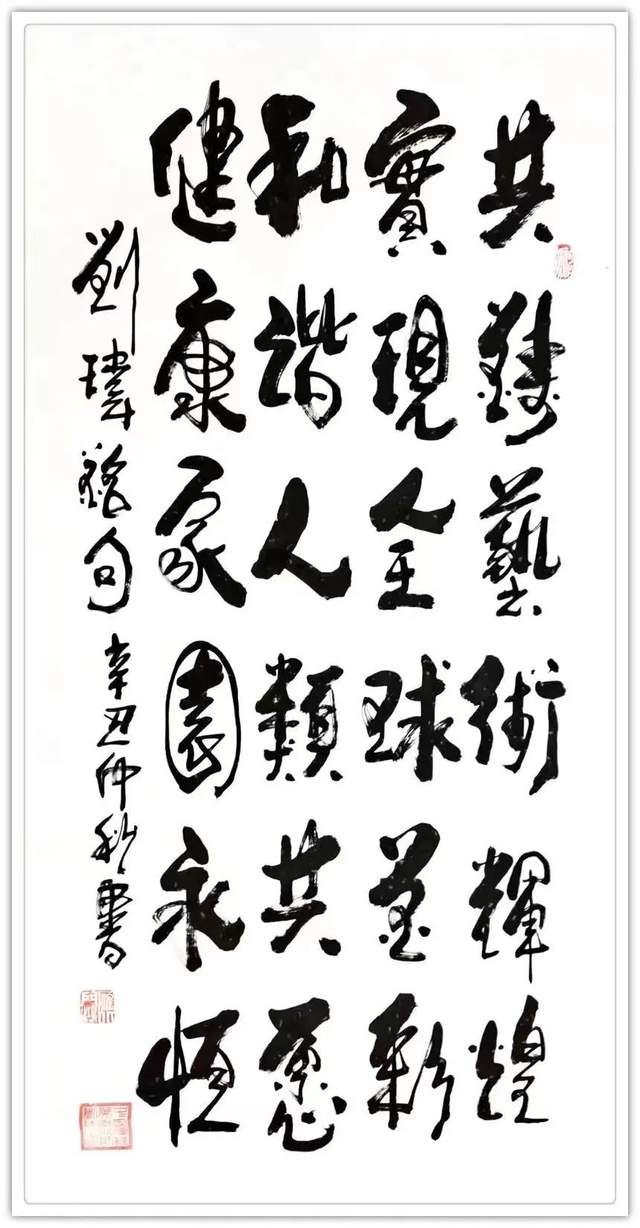 共鑄藝術輝煌
實現全球新
和諧人類共
健康家園永恒
劉瑋句辛丑仲秋書